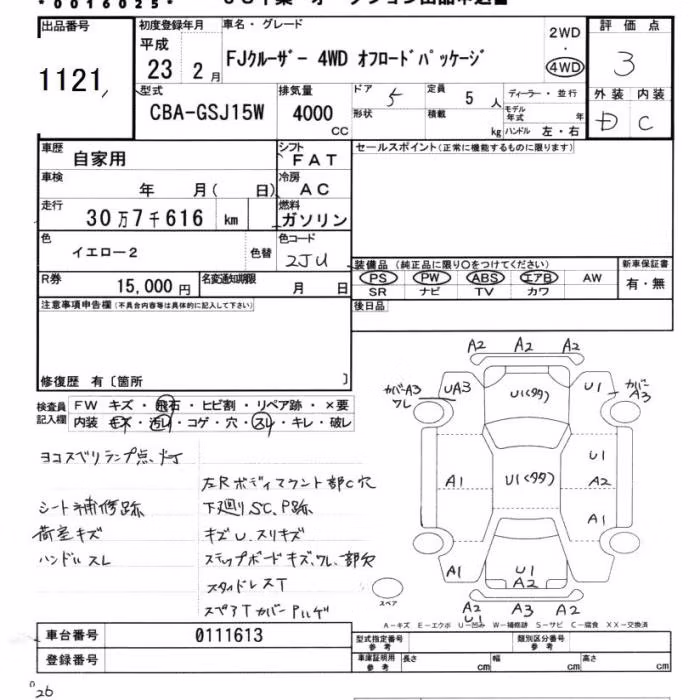 *0016025*
出品番号
1121
初度登録年月
平成
23 2 月
車名・グレード
FJクルーザー 4WD オフロードパッケージ
2WD
・
4WD
評価点
3
外装 内装
D C
型式
CBA-GSJ15W
排気量
4000
CC
ドア 5
定員 5 人
ディーラー・並行
形状
積載 kg
モデル年式 年
ハンドル 左・右
車歴 自家用
シフト FAT
セールスポイント(正常に機能するものに限ります)
車検 年 月( 日)
冷房 AC
走行 30万7千616 km
燃料 ガソリン
色 イエロー2 色替
色コード 2JU
装備品(純正品に限り○をつけてください)
新車保証書
PS PW ABS エアB AW
有・無
SR ナビ TV カワ
R券 15,000 円
名変通知期限 月 日
後日品
注意事項申告欄(不具合内容等は具体的に記入して下さい)
修復歴 有〔箇所 〕
検査員記入欄
FW キズ・飛石・ヒビ割・リペア跡・×要
内装 キズ・汚レ・コゲ・穴・スレ・キレ・破レ
ヨコスベリランプ点灯
シート補修跡
荷室キズ
ハンドルスレ
左RボディマウントC部穴
下廻りSC、P跡
キズU、スリキズ
ステップボードキズ、ワレ、一部欠
スタッドレスT
スペアTカバーPハゲ
A2 A2 A2
カバーA3
ワレ
UA3
U1(タタ)
U1
カバー
A3
A1
U1(タタ)
U1
A2
A1
A1
U1
A2
スペア
A2
U1
A3
A2
A-キズ E-エクボ U-凹み W-補修跡 S-サビ C-腐食 XX-交換済
車台番号 0111613
登録番号
型式指定番号 参考
類別区分番号 参考
車庫証明用 参考
長さ cm 幅 cm 高さ cm
026